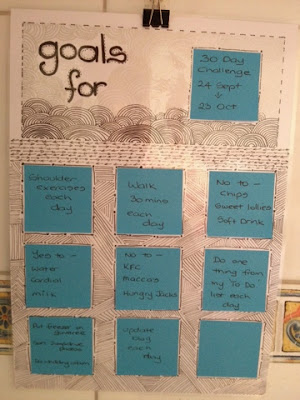 goals
for
30 Day
Challenge
24 Sept
25 Oct
Shoulder
exercises
each
day
Walk
30 mins
each
day
No to -
Chips
Sweet lollies
Soft Drink
Yes to -
Water
Cordial
Milk
No to -
KFC
Maccas
Hungry Jacks
Do one
thing from
my 'To Do'
list each
day
Put freezer in
Update
blog
each
day